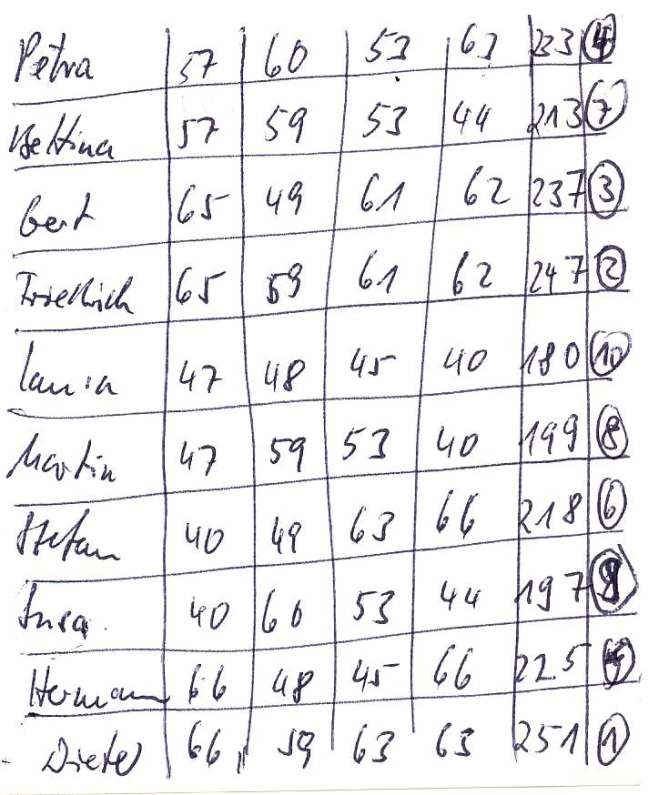 Petra 57 60 53 63 233 4
Bettina 57 59 53 44 213 7
Gert 65 49 61 62 237 3
Friedrich 65 59 61 62 247 2
47 48 45 40 180 10
Martin 47 59 53 40 199 8
Stefan 40 49 63 66 218 6
40 60 53 44 197 9
Hermann 66 48 45 66 225 5
Dieter 66 59 63 63 251 1